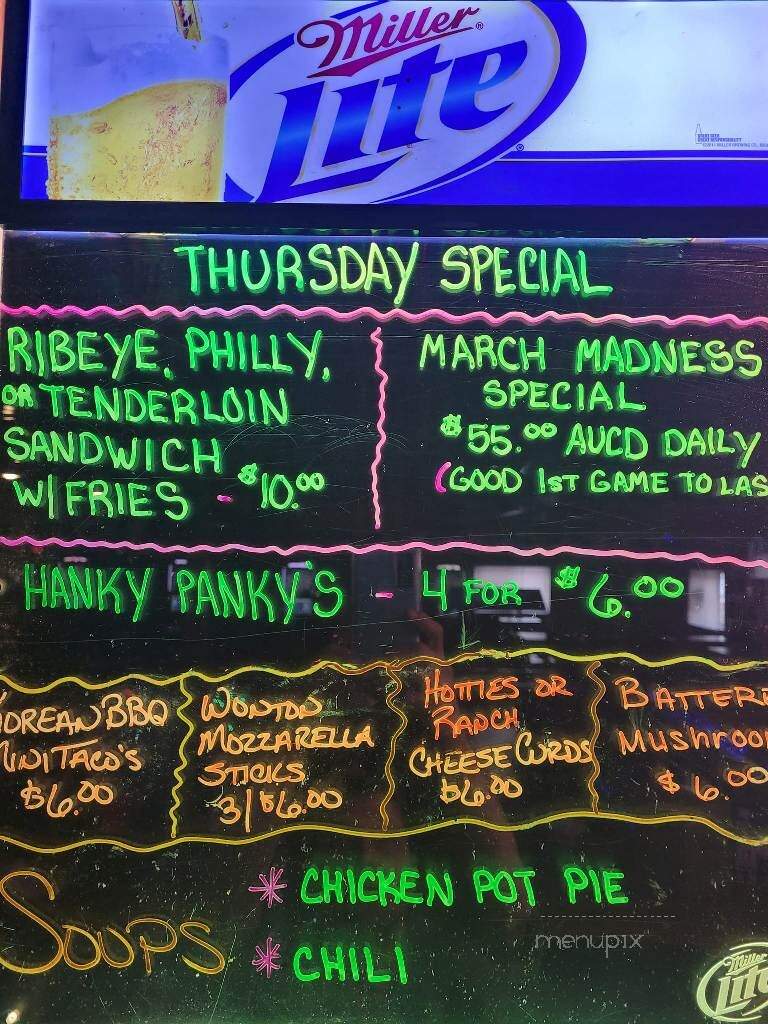 Miller
Lite
THURSDAY SPECIAL
RIBEYE, PHILLY,
OR TENDERLOIN
SANDWICH
W/FRIES - $10.00
MARCH MADNESS
SPECIAL
$55.00 AUCD DAILY
(GOOD 1ST GAME TO LAS
HANKY PANKY'S - 4 FOR $6.00
KOREAN BBQ
MINI TACO'S
$6.00
WONTON
MOZZARELLA
STICKS
3/$6.00
HOTTIES OR
RANCH
CHEESE CURDS
$6.00
BATTERE
MUSHROO
$6.00
SOUPS
* CHICKEN POT PIE
* CHILI
menupix
Miller
Lite